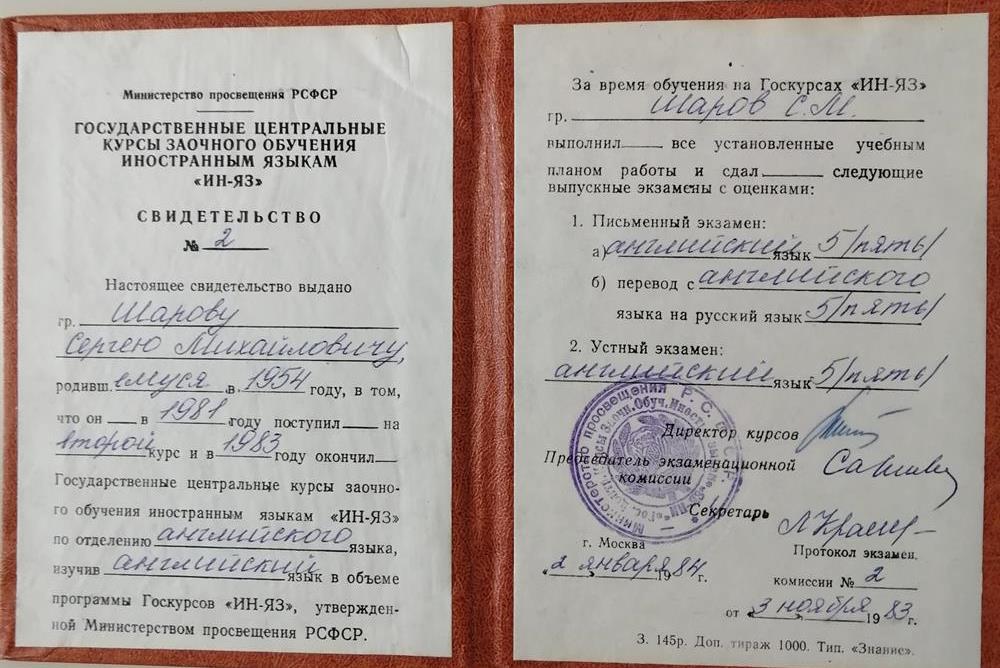 Министерство просвещения РСФСР
ГОСУДАРСТВЕННЫЕ ЦЕНТРАЛЬНЫЕ
КУРСЫ ЗАОЧНОГО ОБУЧЕНИЯ
ИНОСТРАННЫМ ЯЗЫКАМ
«ИН-ЯЗ»
СВИДЕТЕЛЬСТВО
№ 2
Настоящее свидетельство выдано
гр. Шарову
Сергею Михайловичу,
родивш.емуся в 1954 году, в том,
что он в 1981 году поступил на
второй курс и в 1983 году окончил
Государственные центральные курсы заочно-
го обучения иностранным языкам «ИН-ЯЗ»
по отделению английского языка,
изучив английский язык в объеме
программы Госкурсов «ИН-ЯЗ», утвержден-
ной Министерством просвещения РСФСР.
За время обучения на Госкурсах «ИН-ЯЗ»
гр. Шаров С.М.
выполнил все установленные учебным
планом работы и сдал следующие
выпускные экзамены с оценками:
1. Письменный экзамен:
а) английский язык 5/пять/
б) перевод с английского
языка на русский язык 5/пять/
2. Устный экзамен:
английский язык 5/пять/
Директор курсов
Председатель экзаменационной
комиссии
Секретарь
г. Москва
«2 января 1984 г.
Протокол экзамен.
комиссии № 2
от «3 ноября 1983 г.
З. 145р. Доп. тираж 1000. Тип. «Знание».